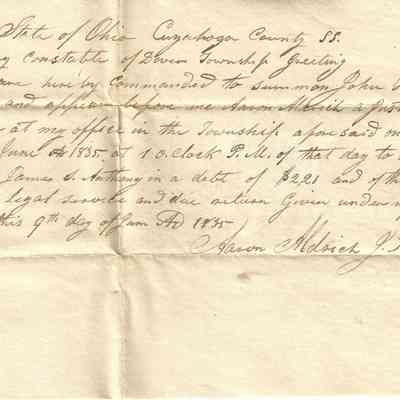 State of Ohio Cuyahoga County SS.
constable of Dover Township Greeting
are hereby commanded to summon John
and appear before me Aaron Aldrich a Just
at my office in the Township aforesaid on
June AD 1835. at 1 o.clock P.M. of that day to
James S. Anthony in a debt of $2.21 and of th
legal service and due return Given under m
this 9th day of June AD 1835
Aaron Aldrich J.